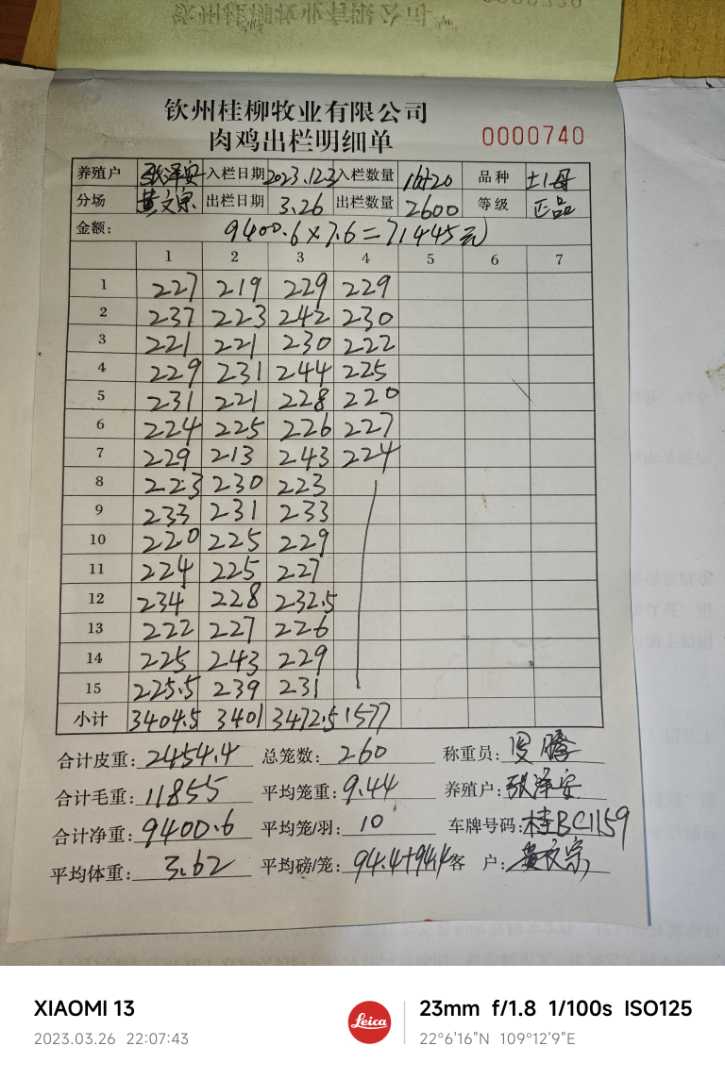 钦州桂柳牧业有限公司
肉鸡出栏明细单 0000740
养殖户 张泽安 入栏日期 2023.12.3 入栏数量 品种
分场 黄文宗 出栏日期 3.26 出栏数量 2600 等级 正品
金额: 9400.6×7.6=71445元
1 2 3 4 5 6 7
1 227 219 229 229
2 237 223 242 230
3 221 221 230 222
4 229 231 244 225
5 231 221 228 220
6 224 225 226 227
7 229 213 243 224
8 223 230 223
9 233 231 233
10 220 225 229
11 224 225 227
12 234 228 232.5
13 222 227 226
14 225 243 229
15 225.5 239 231
小计 3404.5 3401 3472.5 1577
合计皮重: 2454.4 总笼数: 260 称重员:
合计毛重: 11855 平均笼重: 9.44 养殖户: 张泽安
合计净重: 9400.6 平均笼/羽: 10 车牌号码: 桂BC1159
平均体重: 3.62 平均磅/笼: 94.4+94.4 客 户: 黄文宗
XIAOMI 13
Leica
23mm f/1.8 1/100s ISO125
2023.03.26 22:07:43
22°6'16"N 109°12'9"E